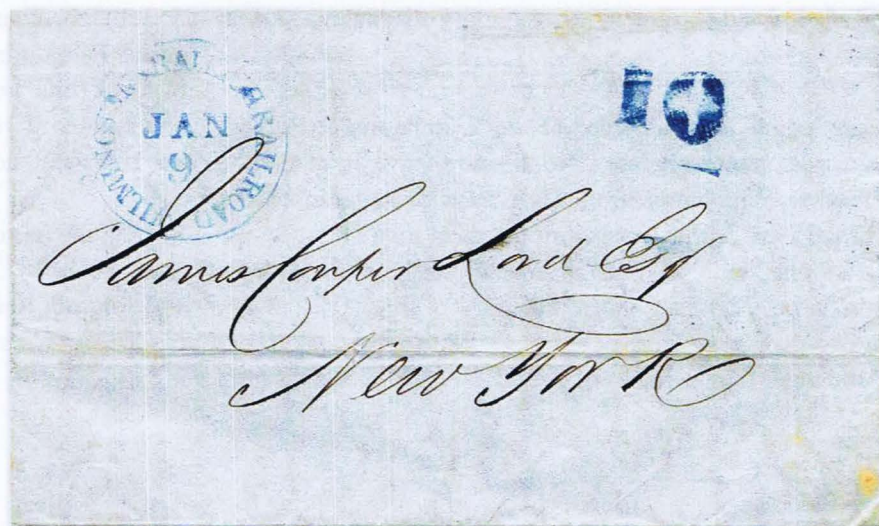 WILMINGTON & RALEIGH RAILROAD
JAN
9
10
James Couper Lord Esq
New York